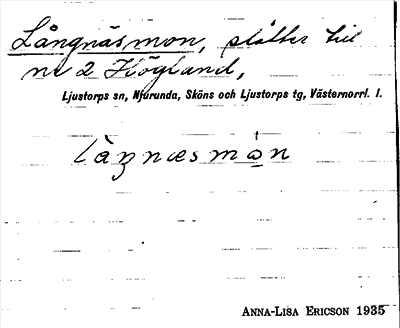 Långnäsmon, slåtter till
nr 2 Högland,
Ljustorps sn, Njurunda, Sköns och Ljustorps tg, Västernorrl. l.
làŋnæsmȯ̱n
ANNA-LISA ERICSON 1935